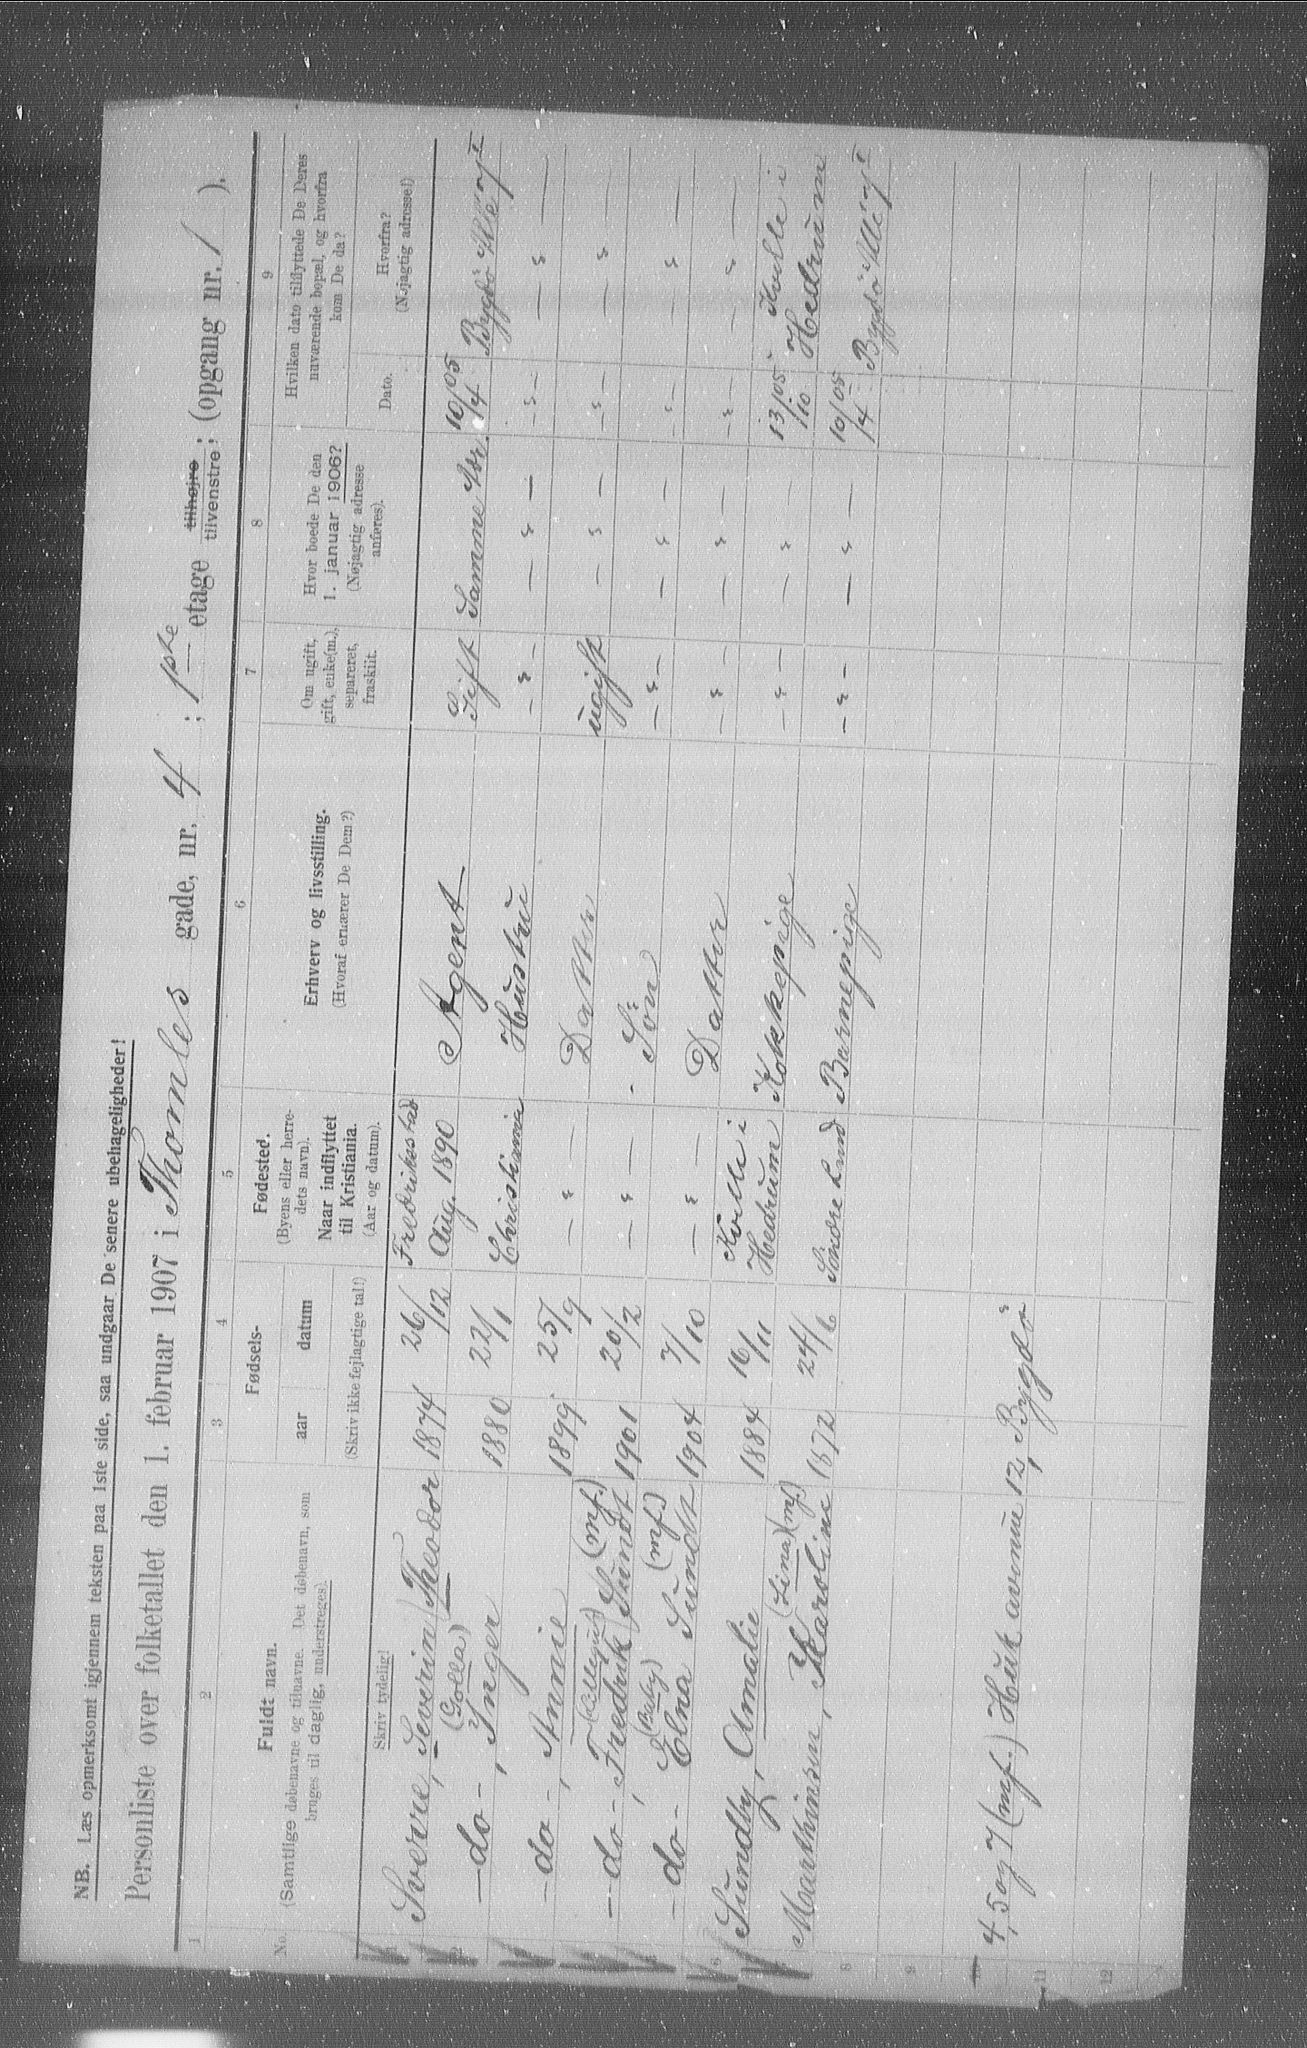 NB. Læs opmerksomt igjennem teksten paa 1ste side, saa undgaar De senere ubehageligheder!
Personliste over folketallet den 1. februar 1907 i Thomles gade, nr. 4; 1ste etage tilhøjre tilvenstre; (opgang nr. / ).
1 2 3 4 5 6 7 8 9
No.
Fuldt navn.
(Samtlige døbenavne og tilnavne. Det døbenavn, som
bruges til daglig, understreges).
Fødsels-
aar datum
Fødested.
(Byens eller herre-
dets navn).
Naar indflyttet
til Kristiania.
(Aar og datum).
Erhverv og livsstilling.
(Hvoraf ernærer De Dem?)
Om ugift,
gift, enke(m.),
separeret,
fraskilt.
Hvor boede De den
1. januar 1906?
(Nøjagtig adresse
anføres).
Hvilken dato tilflyttede De Deres
nuværende bopæl, og hvorfra
kom De da?
Dato.
Hvorfra?
(Nøjagtig adresse!)
Skriv tydelig!
(Skriv ikke fejlagtige tal!)
Sverre, Severin Theodor 1874 26/12 Fredrikstad Aug. 1890 Agent Gift Samme 10/4 05 Bygdö Allé
-do-, (Golla) Inger 1880 22/1 Christiania Hustru - " - - " - - " - - " -
-do-, Annie 1899 25/9 - " - Datter ugift - " - - " - - " -
-do-, Fredrik Sundt (mf.) 1901 20/2 - " - Sön - " - - " - - " - - " -
-do-, (Baby) Elna Sundt (mf.) 1904 7/10 - " - Datter - " - - " - - " - - " -
Sundby, Amalie 1884 16/11 Kvelle i Hedrum Kokkepige - " - - " - 13/10 05 Kvelle i Hedrum
Marthinsen, Karoline (Lina) (mf.) 1872 24/6 Söndre Land Barnepige - " - - " - 10/4 05 Bygdö Allé
8
9
10
11
12
4, 5 og 7 (mf.) Huk avenue 12, Bygdö